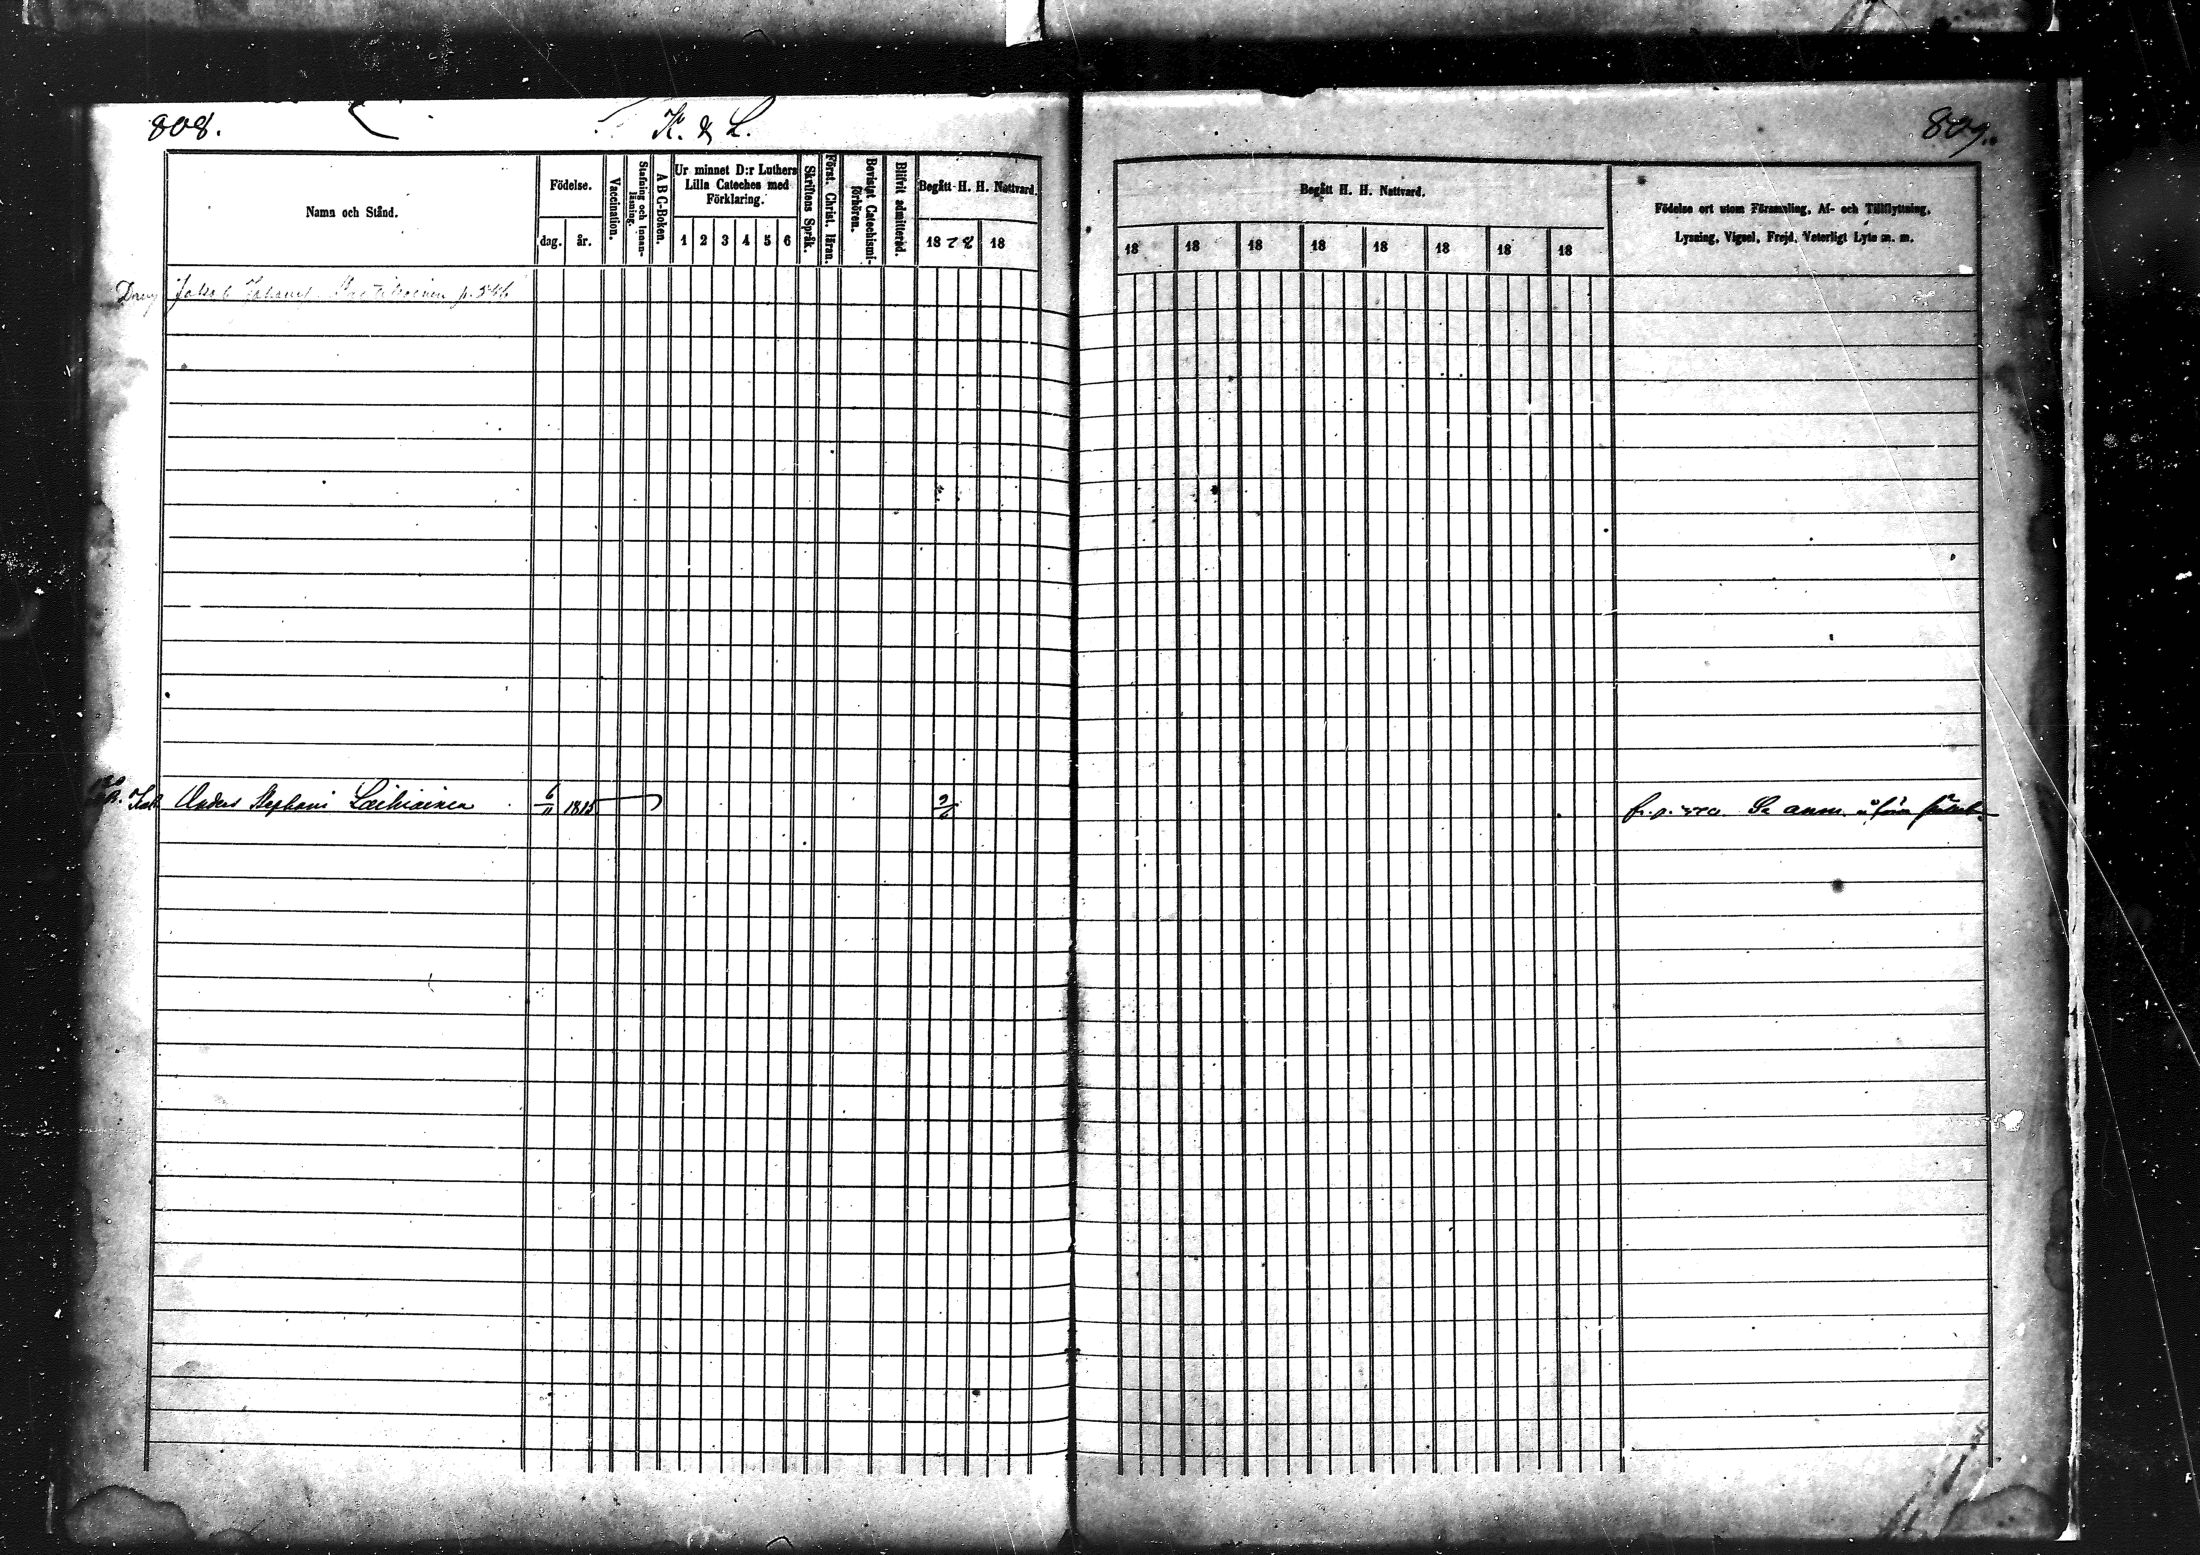 808.
K. & L.
809.
Namn och Stånd.
Födelse.
dag.
år.
Vaccination.
Stafning och Innanläsning.
A B C-Boken.
Ur minnet D:r Luthers Lilla Cateches med Förklaring.
1 2 3 4 5 6
Skriftens Språk.
Först. Christ. läran.
Bevistat Catechismiförhören.
Blifvit admitterad.
Begått H. H. Nattvard.
1878 18
Begått H. H. Nattvard.
18 18 18 18 18 18 18 18
Födelse ort utom Församling, Af- och Tillflyttning,
Lysning, Vigsel, Frejd, Vaterligt Lyte m. m.
Dräng Jakob p. 546
Anders Stephani Laihiainen 6/11 1815 9/6 fr. p. Se anm.